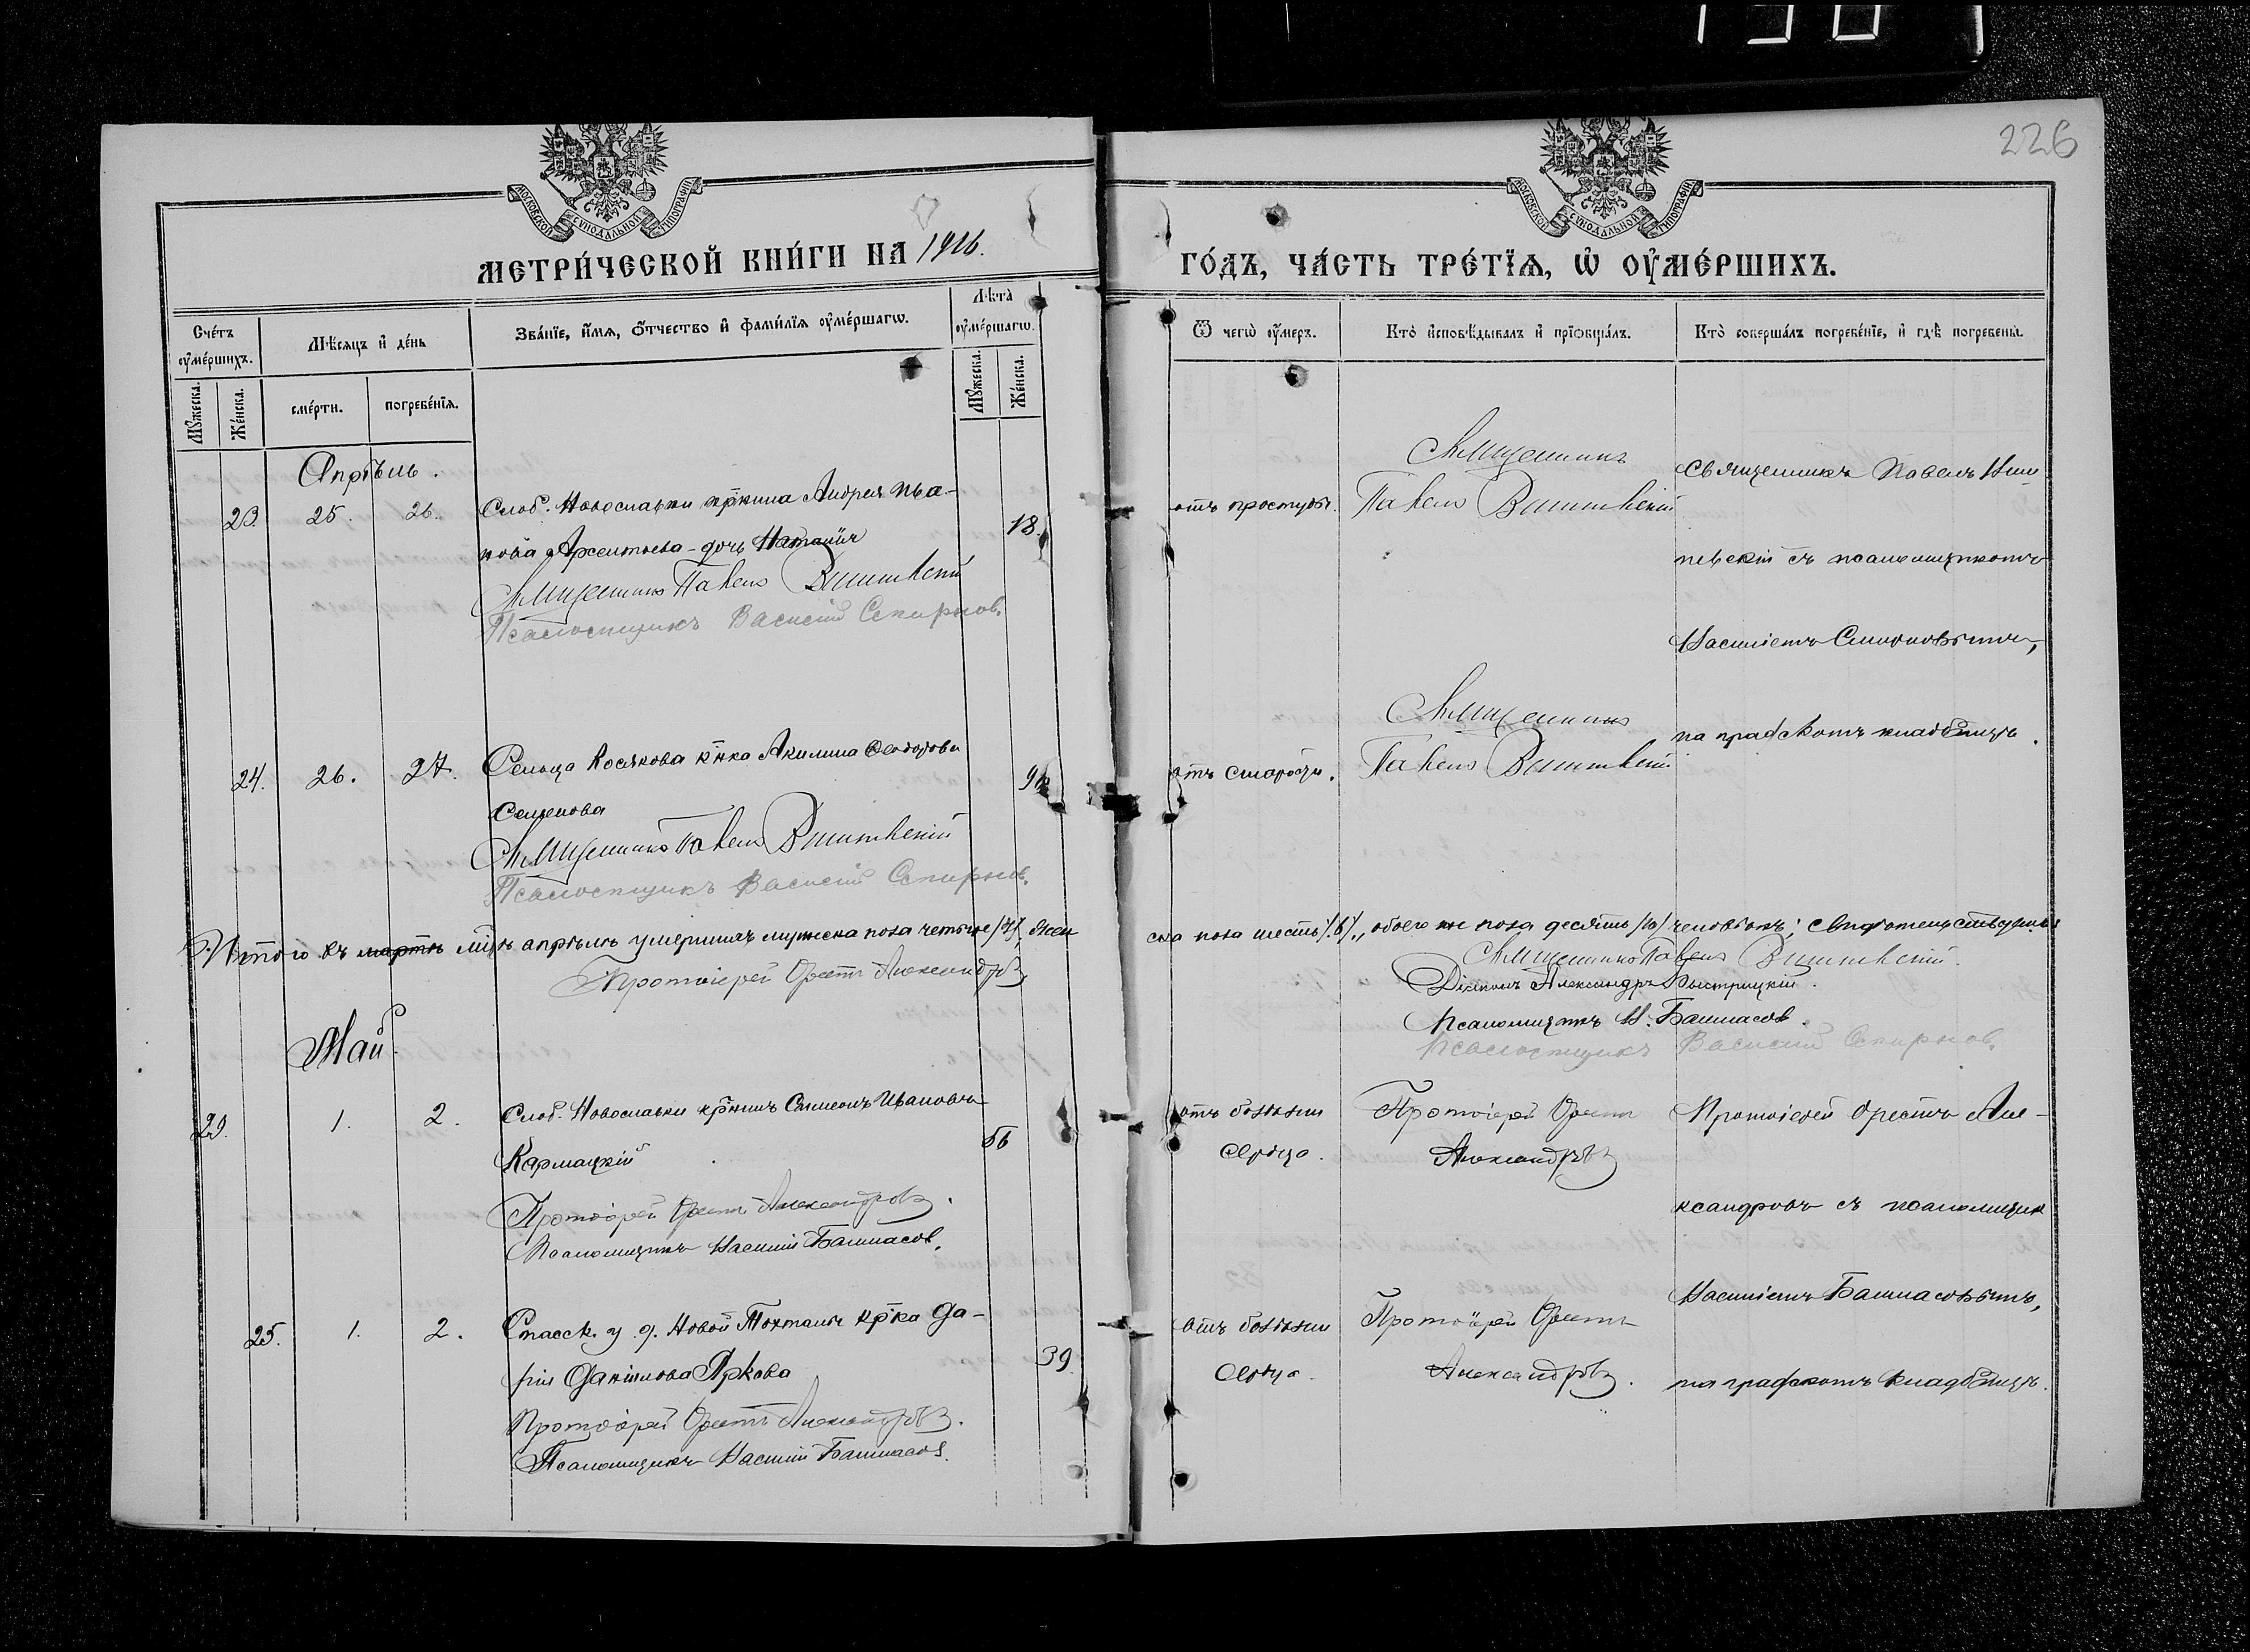 226
МОСКОВСКОЙ СУНОДАЛЬНОЙ ТИПОГРАФІИ
МОСКОВСКОЙ СУНОДАЛЬНОЙ ТИПОГРАФІИ
МЕТРИ́ЧЕСКОЙ КНИ́ГИ НА 1916.
ГО́ДЪ, ЧА́СТЬ ТРЕ́ТЇѦ, Ѡ҆ ОУ҆МЕ́РШИХЪ.
Сче́тъ оу҆ме́ршихъ.
Мꙋ́жеска.
Же́нска.
Мѣ́сяцъ и҆ де́нь
сме́рти.
погребе́нїѧ.
Зва́нїе, и҆́мѧ, ѻ҆́тчество и҆ фами́лїѧ оу҆ме́ршагѡ.
Лѣ́та оу҆ме́ршагѡ.
Мꙋ́жеска.
Же́нска.
Ѿ чегѡ̀ оу҆́меръ.
Кто̀ и҆сповѣ́дывалъ и҆ прїѡбща́лъ.
Кто̀ соверша́лъ погребе́нїе, и҆ гдѣ̀ погребены̀.
Апрѣль.
23. 25. 26. Слоб. Новославки кр҃нина Андрея Ива-
нова Арсентьева - дочь 18.
Священникъ Павелъ
Псаломщикъ Василій Смирнов.
отъ простуды.
Священникъ
Павелъ
Священникъ Павелъ
съ псаломщикомъ
Василіемъ Смирновымъ,
на графскомъ кладбищѣ.
24. 26. 27. Сельца Косякова кр҃нка Акилина Ѳеодорова
Семенова
Священникъ Павелъ
Псаломщикъ Василій Смирнов.
отъ старости.
Священникъ
Павелъ
Итого въ мартѣ мц҃ѣ апрѣлѣ умершихъ мужеска пола четыре /4/, жен
ска пола шесть /6/, обоего же пола десять /10/ человѣкъ;
Протоіерей Орестъ Александровъ
Священникъ Павелъ
Діаконъ Александръ Быстрицкій.
Псаломщикъ В. Башмасов.
Псаломщикъ Василій Смирнов.
Май.
29. 1. 2. Слоб. Новославки кр҃нинъ Симеонъ Ивановъ
Кармацкій
Протоіерей Орестъ Александровъ.
Псаломщикъ Василій Башмасов.
отъ болѣзни
сердца.
Протоіерей Орестъ
Александровъ
Протоіерей Орестъ Але-
ксандровъ съ псаломщик
Василіемъ Башмасовымъ,
на графскомъ кладбищѣ.
25. 1. 2. Спасск. у. д. Новой кр҃нка Да-
рія Данилова 39
Протоіерей Орестъ Александровъ.
Псаломщикъ Василій Башмасов.
отъ болѣзни
сердца.
Протоіерей Орестъ
Александровъ.